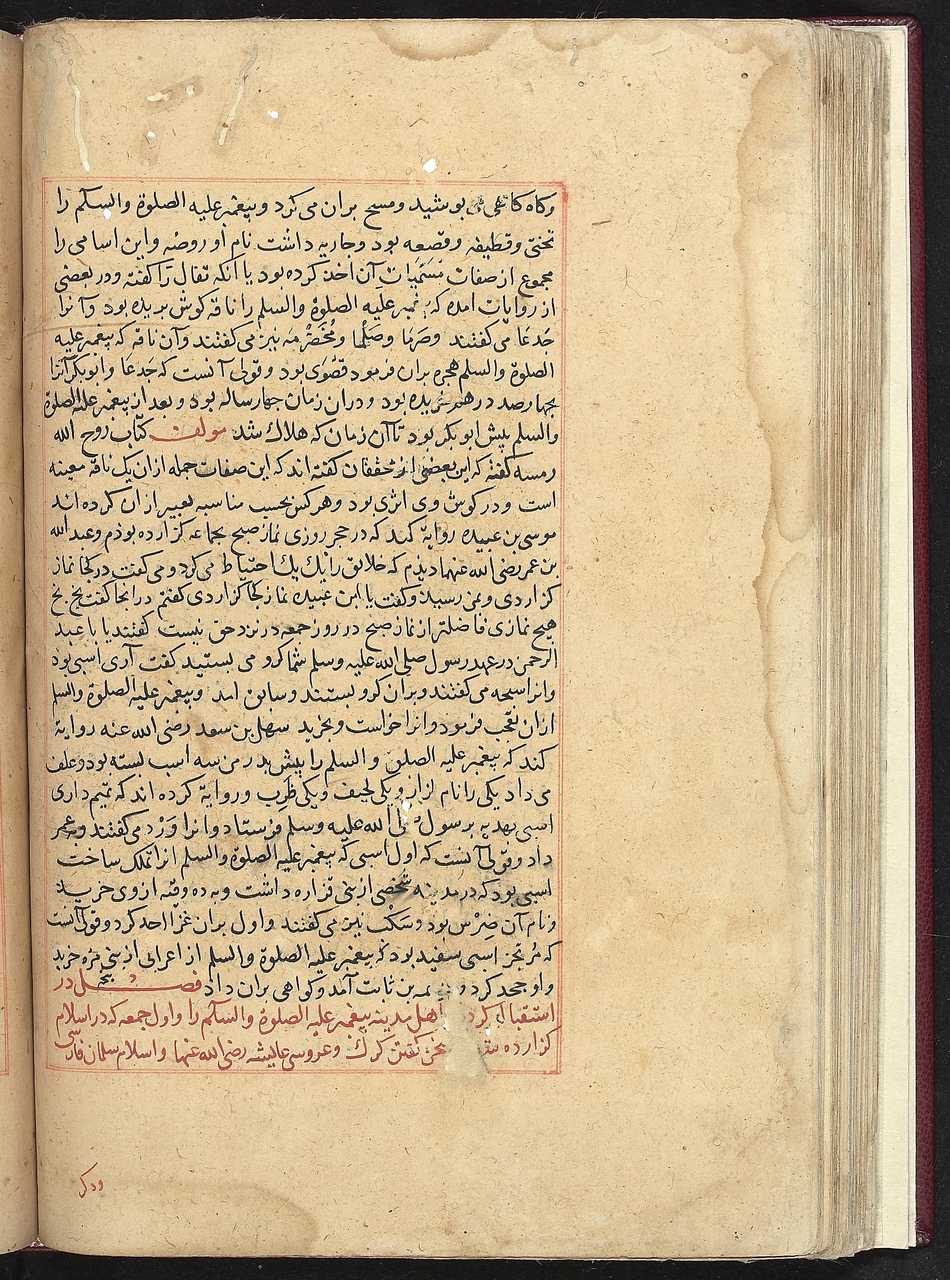 وکاه کاهی بوشید ومسح بران می کرد وبیغمبر علیه الصلوة والسلم را
تختی وقطیفه وقصعه بود وجاریه داشت نام او روضه واین اسامی را
مجموع از صفات مسمیات آن اخذ کرده بود یا آنکه تفال را کفته ودر بعضی
از روایات امده که بیغمبر علیه الصلوة والسلم را ناقه کوش بریده بود وآنرا
جدعا می کفتند وصرما وصلما ومخضرمه نیز می کفتند وآن ناقه که بیغمبر علیه
الصلوة والسلم هجره بران فرمود قصوی بود وقولی آنست که جدعا وابوبکر آنرا
بچهارصد درهم خریده بود ودران زمان چهارساله بود وبعد از بیغمبر علیه الصلوة
والسلم بیش ابوبکر بود تا آن زمان که هلاک شد مولف کتاب روح الله
رمسه کفته که این بعضی از محققان کفته اند که این صفات جمله ازان یک ناقه معینه
است ودر کوش وی اثری بود وهر کس بحسب مناسبه تعبیر ازان کرده اند
موسی بن عبیده روایة کند که در حجر روزی نماز صبح بجماعه کزارده بوذم وعبد الله
بن عمر رضی الله عنهما دیذم که خلایق را یک یک احتیاط می کرد ومی کفت در کجا نماز
کزاردی وبمن رسید وکفت یا ابن عبیده نماز کجا کزاردی کفتم در انجا کفت بخ بخ
هیچ نمازی فاضلتر از نماز صبح در روز جمعه در نزد حق نیست کفتند یا با عبد
الرحمن در عهد رسول صلی الله علیه وسلم شما کرو می بستید کفت آری اسبی بود
وانرا سبحه می کفتند وبران کرو بستند وسابق امد وبیغمبر علیه الصلوة والسلم
ازان تعجب فرمود وانرا خواست وبخرید سهل بن سعد رضی الله عنه روایة
کند که بیغمبر علیه الصلوة والسلم را بیش بدر من سه اسب بسته بود وعلف
می داد یکی را نام لزاز ویکی لحیف ویکی ظرب وروایة کرده اند که تمیم داری
اسبی بهدیه برسول صلی الله علیه وسلم فرستاد وانرا ورد می کفتند وبعمر
داد وقولی آنست که اول اسبی که بیغمبر علیه الصلوة والسلم انرا تملک ساخت
اسبی بود که در مدینه شخصی از بنی فزاره داشت وبه ده وقیه از وی خرید
ونام آن ضرس بود وسکب نیز می کفتند واول بران غزا احد کرد وقولی آنست
که مرتجز اسبی سفید بود که بیغمبر علیه الصلوة والسلم از اعرابی از بنی مره خرید
واو جحد کرد وخزیمه بن ثابت آمد وکواهی بران داد فصل بنجم در
استقبال کردن اهل مدینه بیغمبر علیه الصلوة والسلم را واول جمعه که در اسلام
کزارده سخن کفتن کرک وعروسی عایشه رضی الله عنها واسلام سلمان فارسی
ودکر